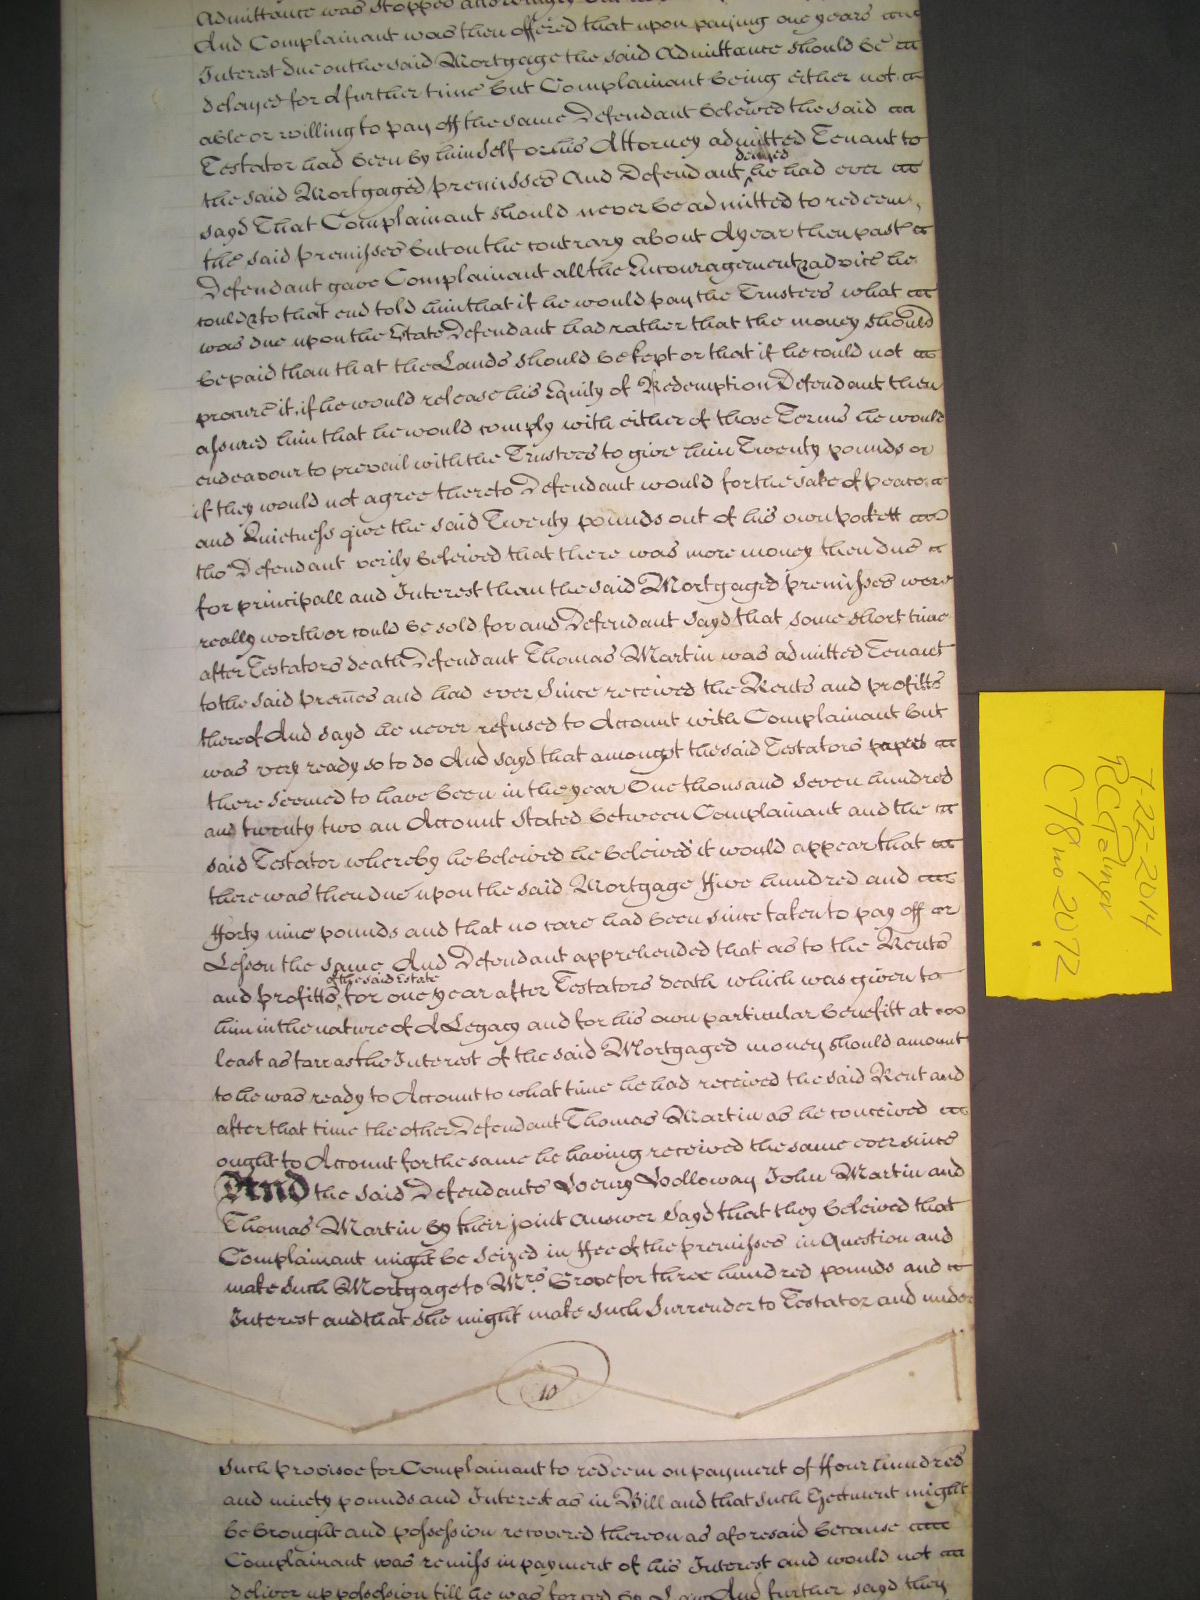 Admittance was stopped and
And Complainant was then offered that upon paying one years
Interest due on the said Mortgage the said Admittance should be
delayed for A further time but Complainant being either not
able or willing to pay off the same Defendant beleived the said
Testator had been by himself or his Attorney admitted Tenant to
the said Mortgaged premisses And Defendant denyed he had ever
sayd That Complainant should never be admitted to redeem
the said premisses but on the contrary about A year then past
Defendant gave Complainant all the Encouragement & advice he
could & to that end told him that if he would pay the Trustees what
was due upon the Estate Defendant had rather that the money should
be paid than that the Lands should be kept or that if he could not
procure it, if he would release his Equity of Redemption Defendant then
assured him that he would comply with either of those Terms he would
endeavour to prevail with the Trustees to give him Twenty pounds or
if they would not agree thereto Defendant would for the sake of peace
and Quietness give the said Twenty pounds out of his own pockett
tho' Defendant verily beleived that there was more money then due
for principall and Interest then the said Mortgaged premisses were
really worth or could be sold for and Defendant Sayd that some short time
after Testators death Defendant Thomas Martin was admitted Tenant
to the said premes and had ever Since received the Rents and profitts
thereof And sayd he never refused to Account with Complainant but
was very ready so to do And sayd that amongst the said Testators papers
there seemed to have been in the year One thousand seven hundred
and twenty two an Account stated between Complainant and the
said Testator whereby he beleived he beleived it would appear that
there was then due upon the said Mortgage ffive hundred and
fforty nine pounds and that no care had been since taken to pay off or
Lessen the same And Defendant apprehended that as to the Rents
and profitts of the said Estate for one year after Testators death which was given to
him in the nature of A Legacy and for his own particular benefitt at
least as farr as the Interest of the said Mortgaged money should amount
to he was ready to Account to what time he had received the said Rent and
after that time the other Defendant Thomas Martin as he conceived
ought to Account for the same he having received the same ever since
And the said Defendants Holloway John Martin and
Thomas Martin by their joint Answer Sayd that they beleived that
Complainant might be Seized in ffee of the premisses in Question and
make such Mortgage to Mrs. Grove for three hundred pounds and
Interest and that she might make such Surrender to Testator and under
10
Such provisoe for Complainant to redeem on payment of ffour hundred
and ninety pounds and Interest as in Bill and that such Ejectment might
be brought and possession recovered thereon as aforesaid because
Complainant was remiss in payment of his Interest and would not
deliver up possession till he was forced by Law And further sayd they
7-22-2014
C78 no 2072